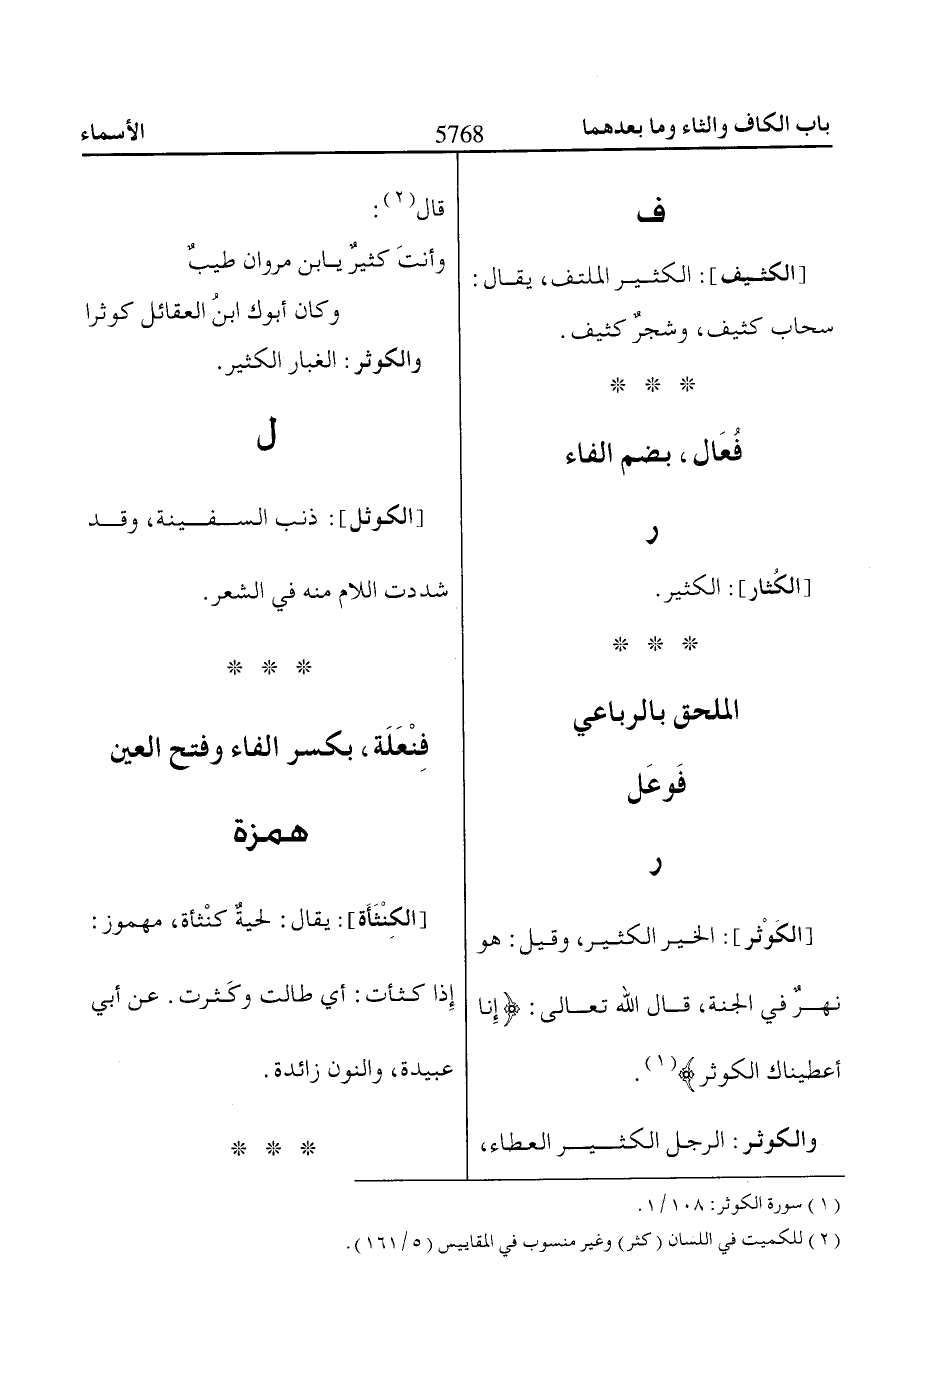 باب الكاف والثاء وما بعدهما
5768
الأسماء
ف
[الكثيف]: الكثير الملتف، يقال:
سحاب كثيف، وشجرٌ كثيف.
* * *
فُعَال، بضم الفاء
ر
[الكُثار]: الكثير.
* * *
الملحق بالرباعي
فَوعَل
ر
[الكَوْثر]: الخير الكثير، وقيل: هو
نهرٌ في الجنة، قال الله تعالى: ﴿إنا
أعطيناك الكوثر﴾(١).
والكوثر: الرجل الكثير العطاء،
قال(٢):
وأنتَ كثيرٌ يابن مروان طيبٌ
وكان أبوك ابنُ العقائل كوثرا
والكوثر: الغبار الكثير.
ل
[الكوثل]: ذنب السفينة، وقد
شددت اللام منه في الشعر.
* * *
فِنْعَلَة، بكسر الفاء وفتح العين
همزة
[الكِنْثَأَة]: يقال: لحيةٌ كنْثأة، مهموز:
إذا كثأت: أي طالت وكَثرت. عن أبي
عبيدة، والنون زائدة.
* * *
(١) سورة الكوثر: ١/١٠٨.
(٢) للكميت في اللسان (كثر) وغير منسوب في المقاييس (٥/١٦١).